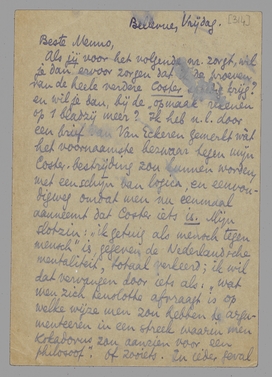 Bellevue, Vrijdag. [314]
Beste Menno,
Als jij voor het volgende nr. zorgt, wil
je dan ervoor zorgen dat ik de proeven
van de heele verdere Coster krijg?
en wil je dan, bij de "opmaak" rekenen
op 1 bladzij meer? Ik heb n.l. door
een brief van Van Eckeren gemerkt wat
het voornaamste bezwaar tegen mijn
Coster-bestrijding zou kunnen worden
met een schijn van logica, en eenvou-
digweg omdat men nu eenmaal
aanneemt dat Coster iets is. Mijn
slotzin: "ik getuig als mensch tegen
mensch" is, gegeven de Nederlandsche
mentaliteit, totaal verkeerd; ik wil
dat vervangen door iets als: "wat
men zich tenslotte afvraagt is op
welke wijze men zou hebben te argu-
menteeren in een streek waar men
Kokadorus zou aanzien voor een
philosoof". Of zooiets. In ieder geval